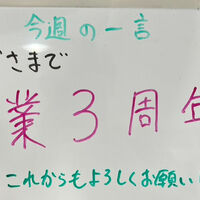 今週の一言
さまで
業3周年
これからもよろしくお願い